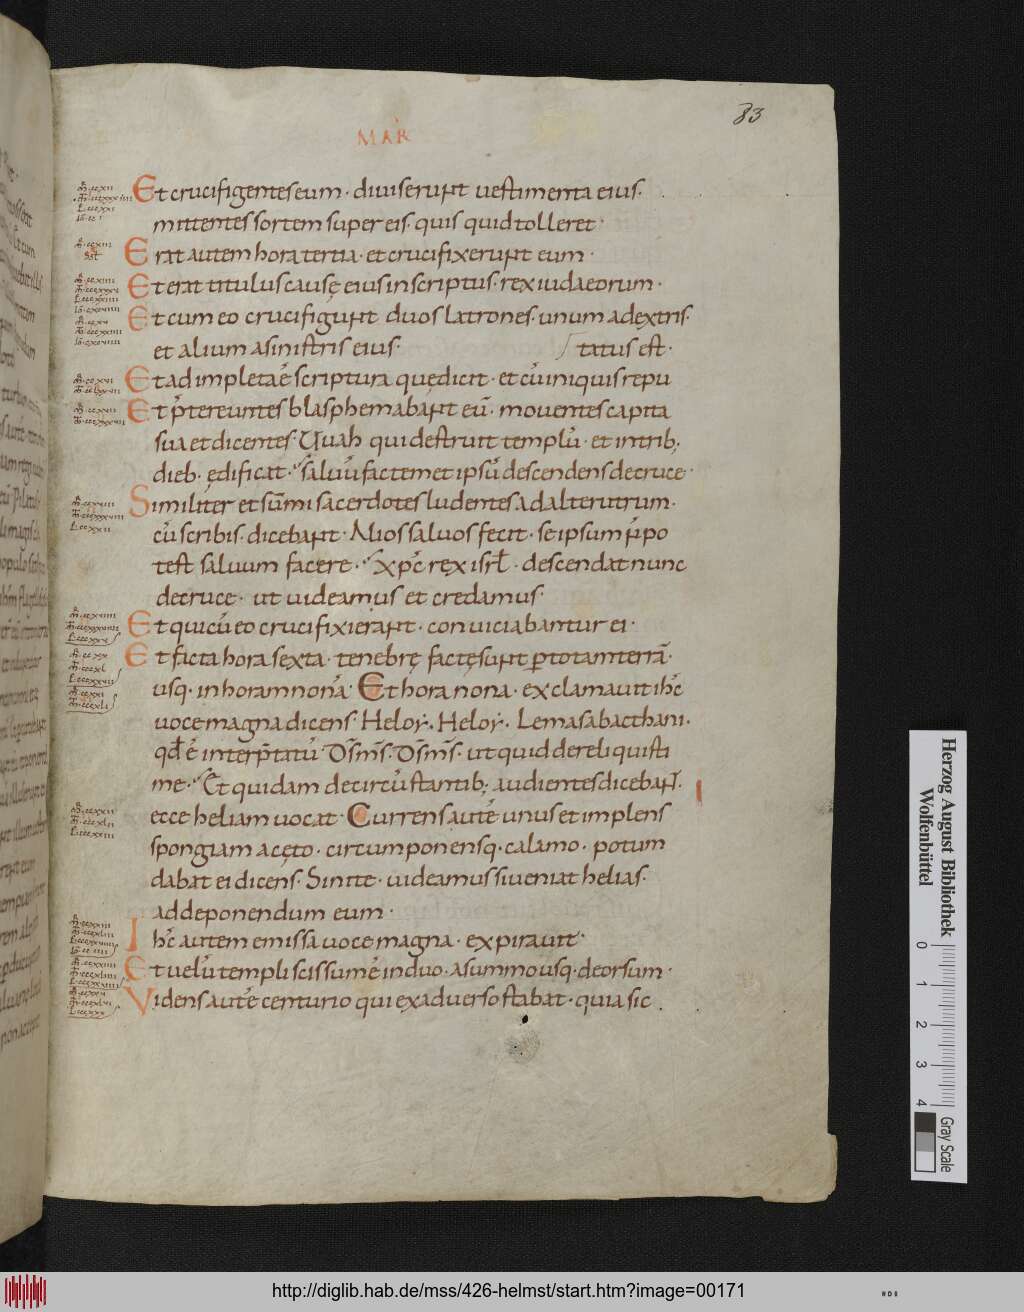 83
MAR
Et crucifigentes eum · diuiserunt uestimenta eius ·
mittentes sortem super eis · quis quid tolleret ·
Erat autem hora tertia · et crucifixerunt eum ·
Et erat titulus causę eius inscriptus · rex iudaeorum ·
Et cum eo crucifigunt duos latrones · unum adextris ·
et alium asinistris eius · tatus est ·
Et adimpleta ē scriptura quę dicit · et cū iniquis repu
Et p̄tereuntes blasphemabant eū · mouentes capita
sua et dicentes · Uah qui destruit templū · et in trib;
dieb · ędificat · saluū fac temet ipsū descendens de cruce ·
Similiter et sūmi sacerdotes ludentes ad alterutrum ·
cū scribis · dicebant · Alios saluos fecit · se ipsum n̄ po
test saluum facere · Xp̄c rex isrl̄ · descendat nunc
de cruce · ut uideamus et credamus ·
Et qui cū eo crucifixi erant · conuiciabantur ei ·
Et facta hora sexta · tenebrę factę sunt p totam terrā ·
usq · in horam nonā · Et hora nona · exclamauit ih̄c
uoce magna dicens · Heloy · Heloy · Lema sabacthani ·
qd̄ ē interp̄tatū D̄s m̄s · D̄s m̄s · ut quid dereliquisti
me · Et quidam de circūstantib; audientes dicebant ·
ecce heliam uocat · Currens autē unus et implens
spongiam acęto · circumponensq · calamo · potum
dabat ei dicens · Sinite · uideamus si ueniat helias ·
ad deponendum eum ·
Ih̄c autem emissa uoce magna · expirauit ·
Et uelū templi scissum ē in duo · a summo usq · deorsum ·
Videns autē centurio qui ex aduerso stabat · quia sic
Herzog August Bibliothek
Wolfenbüttel
0 1 2 3 4
Gray Scale
http://diglib.hab.de/mss/426-helmst/start.htm?image=00171